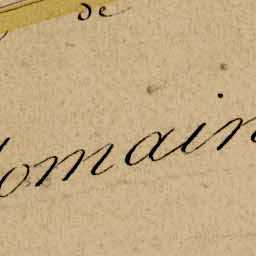 de
omain